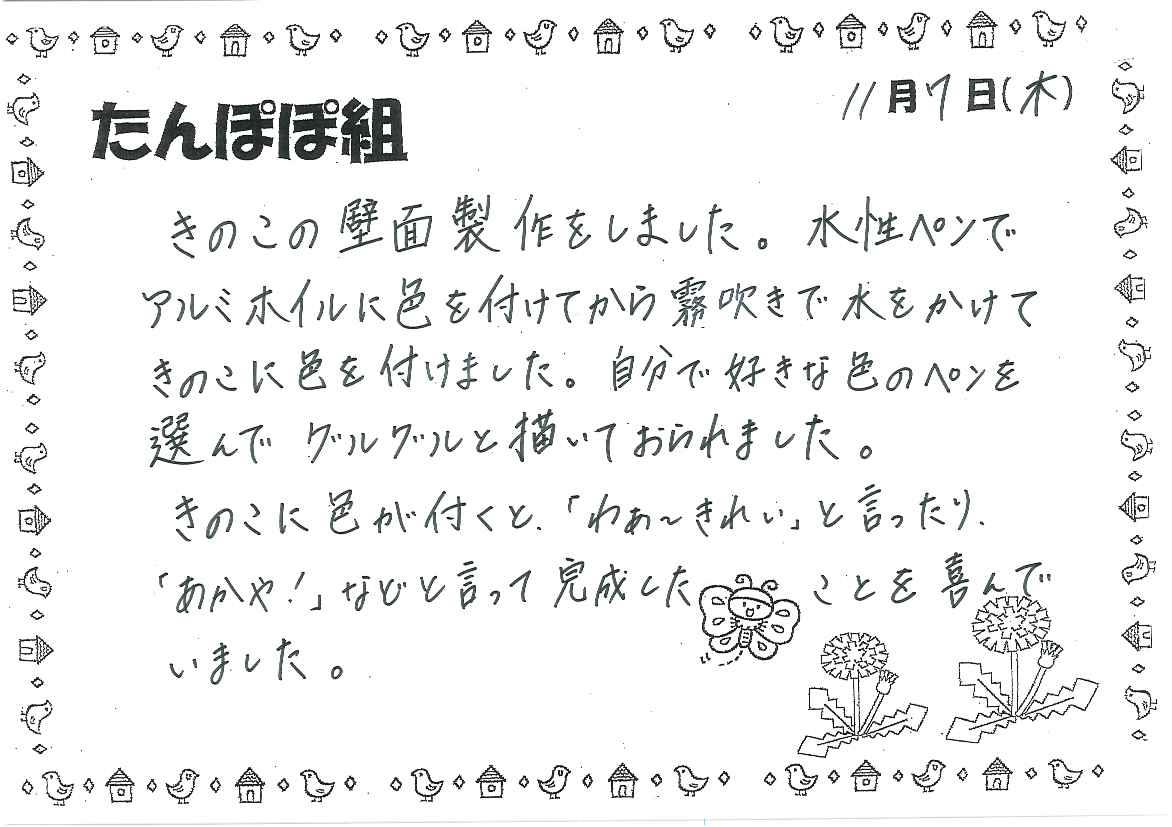 11月7日(木)
たんぽぽ組
きのこの壁面製作をしました。水性ペンで
アルミホイルに色を付けてから霧吹きで水をかけて
きのこに色を付けました。自分で好きな色のペンを
選んでグルグルと描いておられました。
きのこに色が付くと、「わぁ～きれい」と言ったり、
「あかや!」などと言って完成したことを喜んで
いました。